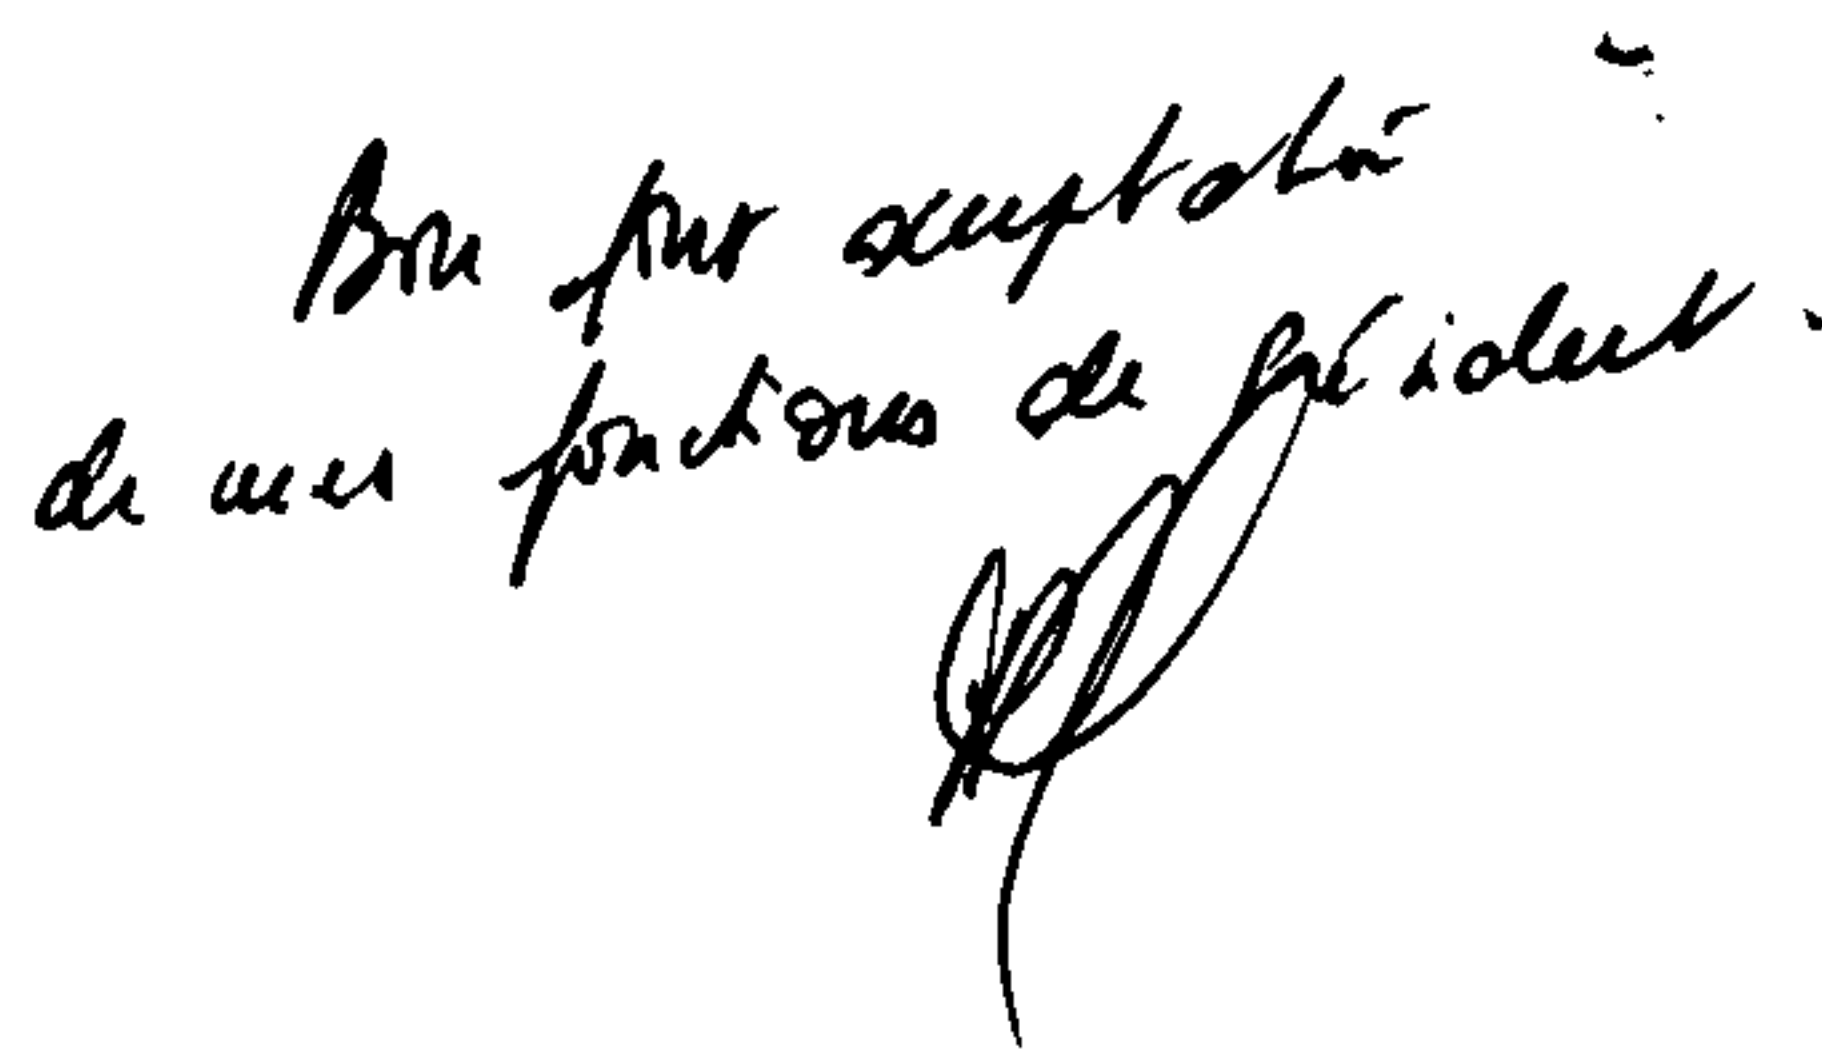 Bon pour acceptation
de mes fonctions de Président.